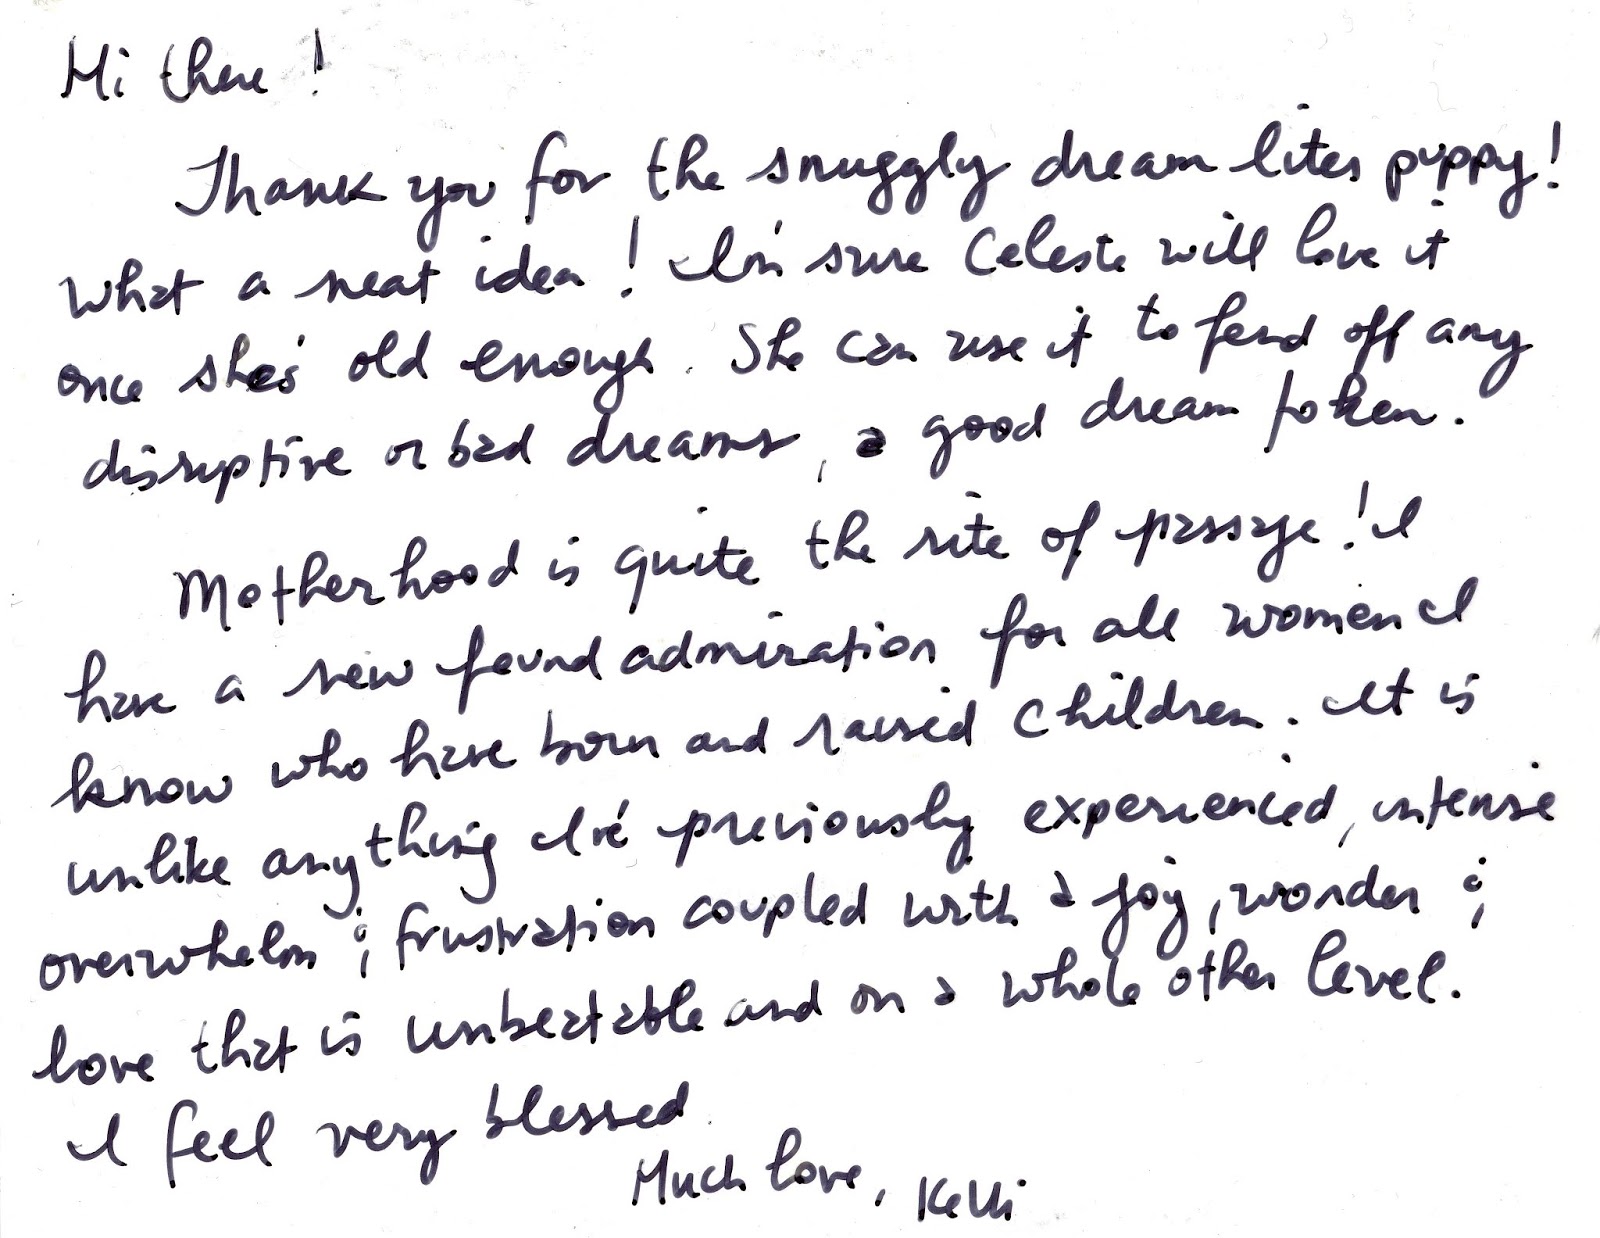 Hi there!
Thank you for the snuggly dream lites puppy!
What a neat idea! I'm sure Celeste will love it
once she's old enough. She can use it to fend off any
disruptive or bad dreams, a good dream token.
Motherhood is quite the rite of passage! I
have a new found admiration for all women I
know who have born and raised children. It is
unlike anything I've previously experienced, intense
overwhelm & frustration coupled with a joy, wonder &
love that is unbeatable and on a whole other level.
I feel very blessed
Much love, Kelli